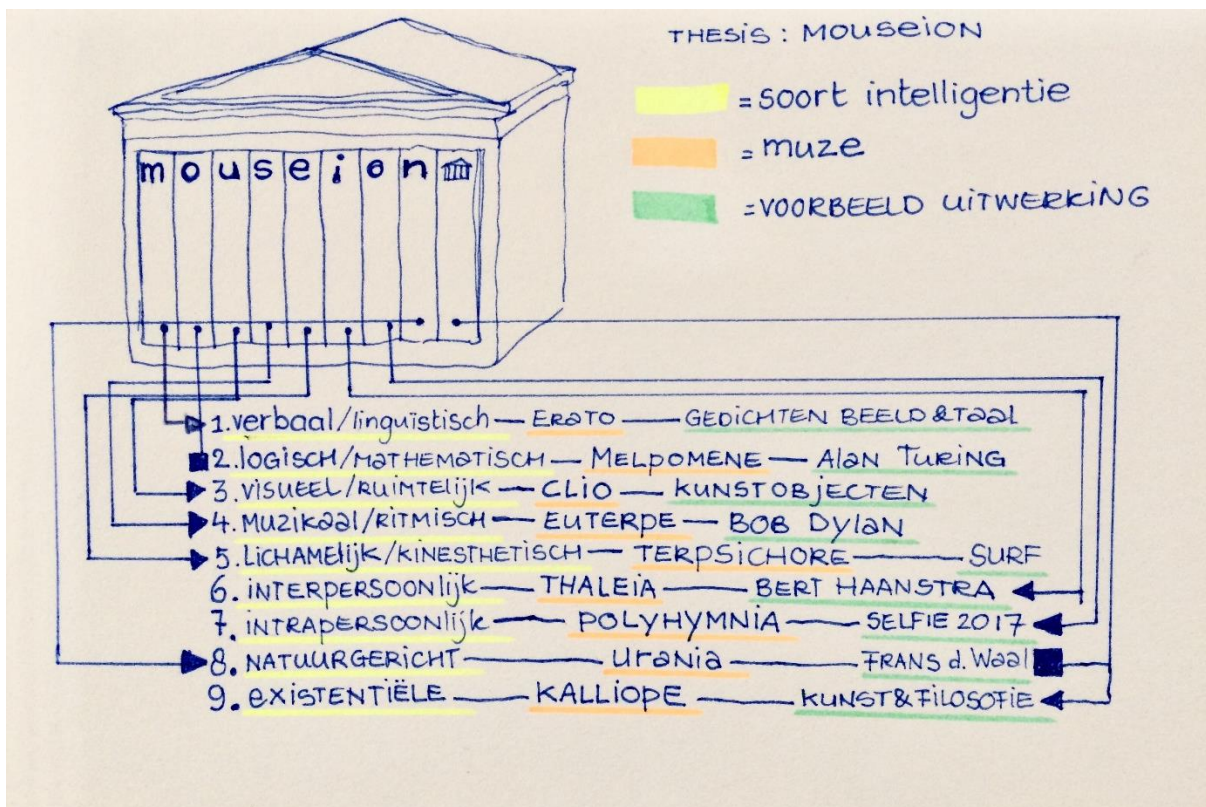 THESIS : MOUSEION
= soort intelligentie
= muze
= VOORBEELD UITWERKING
mouseion
1. verbaal/linguïstisch — ERATO — GEDICHTEN BEELD & TAAL
2. LOGISCH/MATHEMATISCH — MELPOMENE — Alan TURING
3. VISUEEL/RUIMTELIJK — CLIO — KUNSTOBJECTEN
4. MUZIKAAL/RITMISCH — EUTERPE — BOB DYLAN
5. LICHAMELIJK/KINESTHETISCH — TERPSICHORE — SURF
6. INTERPERSOONLIJK — THALEIA — BERT HAANSTRA
7. INTRAPERSOONLIJK — POLYHYMNIA — SELFIE 2017
8. NATUURGERICHT — URANIA — FRANS d. Waal
9. EXISTENTIËLE — KALLIOPE — KUNST & FILOSOFIE